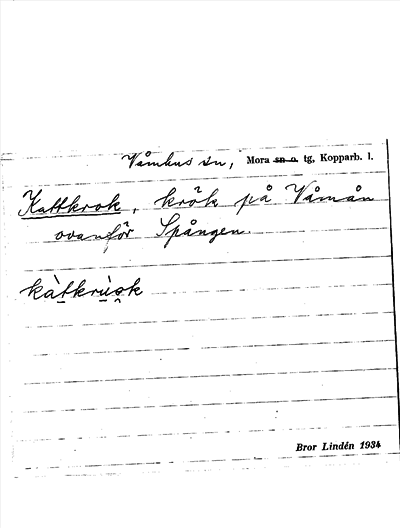 Våmhus sn, Mora sn o. tg, Kopparb. l.
Kattkrok, krök på Våmån
ovanför Spången.
kàtkrùsk
Bror Lindén 1934